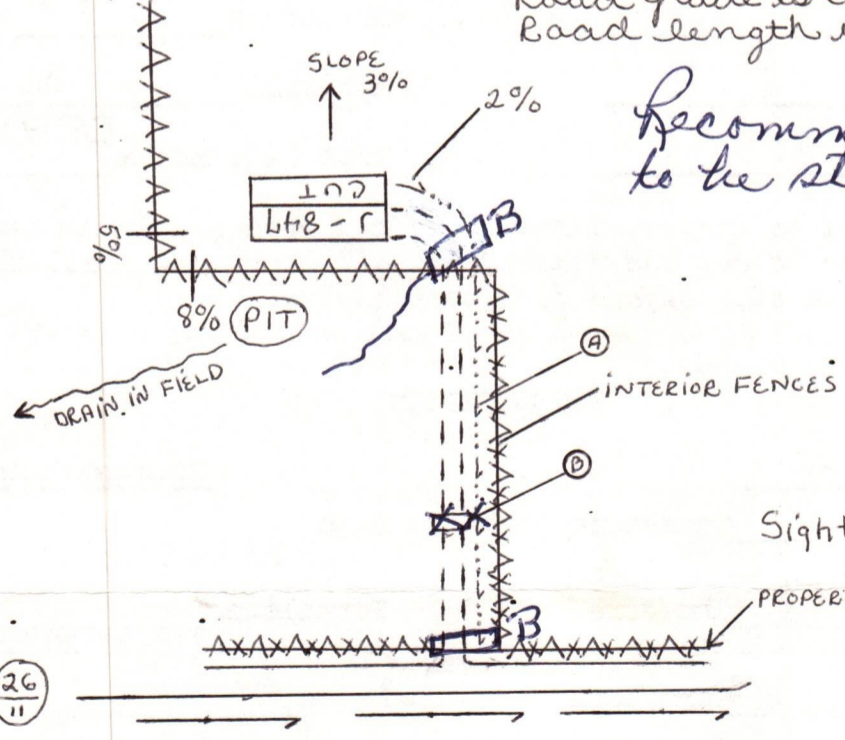 Road grade is
Road length
SLOPE
3%
2%
Recomm
to be st
CUT
J-847
B
5%
8%
PIT
A
DRAIN IN FIELD
INTERIOR FENCES
B
Sight
PROPER
B
26
11